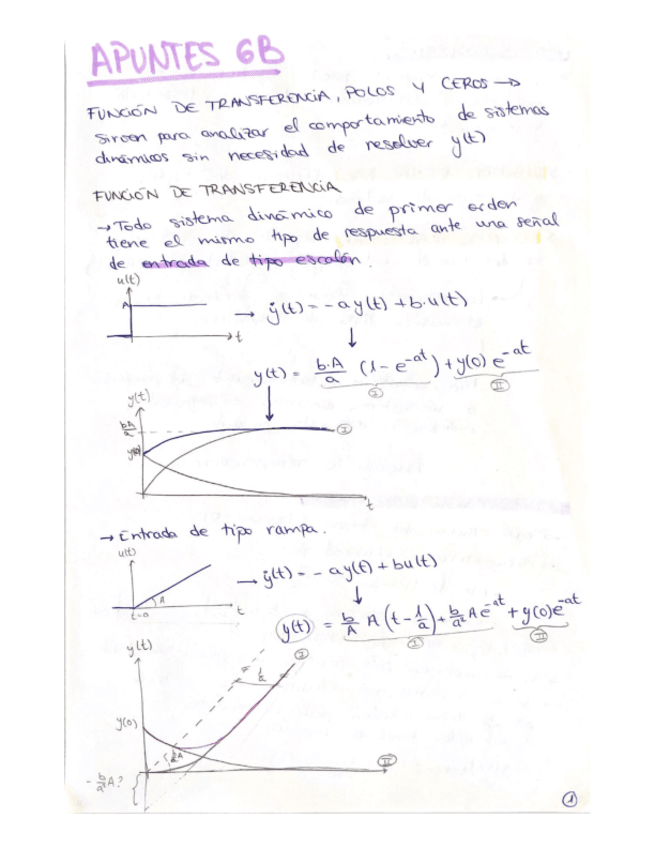 APUNTES 6B
FUNCIÓN DE TRANSFERENCIA, POLOS Y CEROS →
sirven para analizar el comportamiento de sistemas
dinámicos sin necesidad de resolver y(t)
FUNCIÓN DE TRANSFERENCIA
→ Todo sistema dinámico de primer orden
tiene el mismo tipo de respuesta ante una señal
de entrada de tipo escalón.
u(t)
A
t
→ ẏ(t) = - a y(t) + b·u(t)
↓
y(t) = b·A/a (1 - e^-at) + y(0) e^-at
I II
y(t)
bA/a
y(0)
I
t
→ Entrada de tipo rampa.
u(t)
A
t=0
t
→ ẏ(t) = - a y(t) + bu(t)
↓
y(t) = b/A A (t - 1/a) + b/a² A e^-at + y(0) e^-at
I II
y(t)
I
y(0)
II
- b/a² A?
1